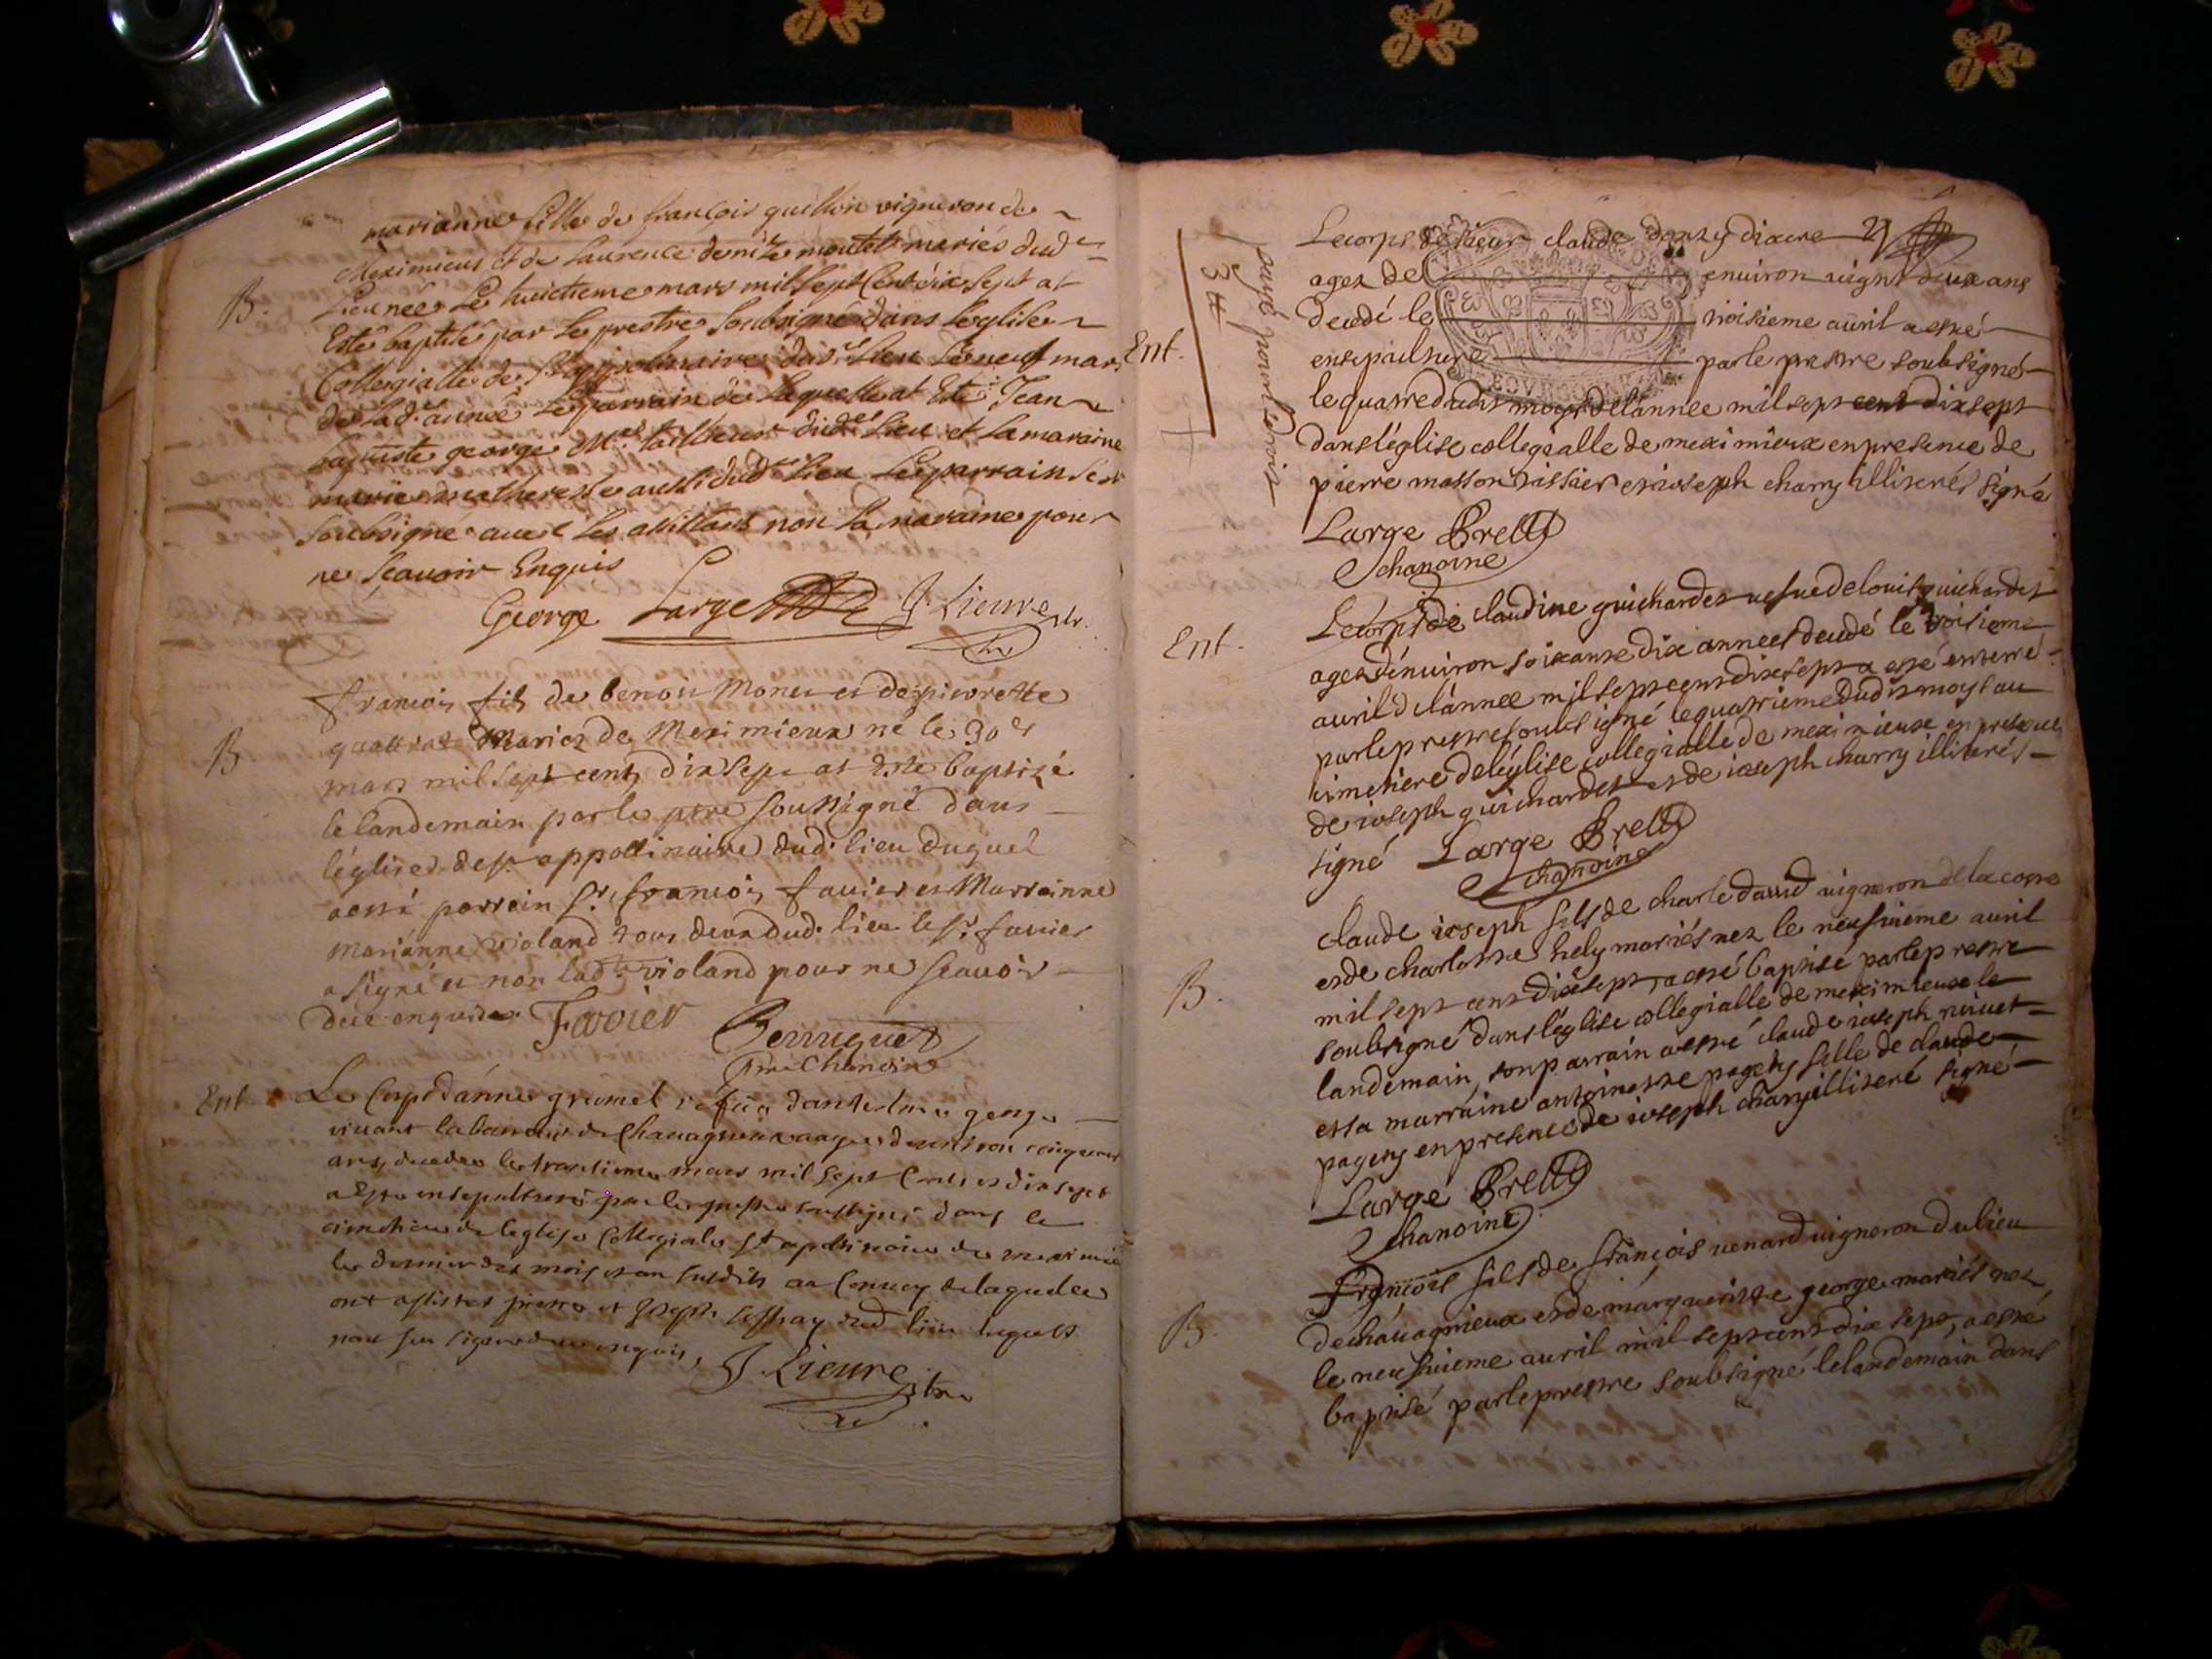 marianne fille de françois guillon vigneron de
Meximieux et de Laurence denize montet mariés dud
B. Lieu née Le huictieme mars mil sept Cent dix sept at
Esté baptisé par Le prestre soubsigné dans Leglise
Collegialle de St appolinaire dud Lieu Le neuf mars
de lad. année Le parrain de Laquelle at Esté Jean
baptiste george Mtre tailleur dud Lieu et La maraine
marie aussi dud Lieu Le parrain sest
soubsigné avec les assistans non La maraine pour
ne scavoir Enquis
George Large J. Lieure ptr.
francois fils de benoit Monet et de pierrette
B mariez de Meximieux né le 30e
mars mil sept cent dix sept at esté baptizé
le landemain par le pre soussigné dans
léglise de st. appollinaire dud. lieu duquel
a esté parrein sr. francois favier et Marreinne
Marianne violand tous deux dud. lieu le sr. favier
a signé et non lad. violand pour ne scavoir
de ce enquise. Favier Perruquet
Pre Chanoine
Ent Le Corps d'anne grumel vefua d'anthelme george
vivant de Chavagneux aagee d'environ cinquante
ans decedee le trentieme mars mil sept Cents et dix sept
a esté ensepulturé par le prestre soussigné dans le
cimetiere de leglise Collegiale st apollinaire de meximieux
le dernier des mois et an susdits au Convoy de laquelle
ont assistes pierre et Joseph dud lieu lequels
nont sceu signer de ce enquis,
J. Lieure ptr.
payé pour le droit
3 #
Le corps de sieur claude danzy diacre 21
agez de environ vignt deux ans
decedé le troisieme avril a esté
Ent. ensepulturé par le prestre soubsigné
le quatre dudit moys de l'annee mil sept cent dix sept
dans l'église collegialle de meximieux en presence de
pierre masson tissier et ioseph charry illiterés signé
Large Brett
chanoine
Ent. Le corps de claudine guichardet vefue de louis guichardet
agez d'environ soixante dix annees decedé le troisieme
avril de l'annee mil sept cent dix sept a esté enterré
par le prestre soubsigné le quatrieme dudit moys au
cimetiere de l'église collegialle de meximieux en presence
de ioseph guichardet et de ioseph charry illiterés
signé Large Brett
chanoine
claude ioseph fils de charle david vigneron de la coste
et de charlotte hely mariés nez le neufvieme avril
B. mil sept cent dix sept, a esté baptisé par le prestre
soubsigné dans l'église collegialle de meximieux le
landemain, son parrain a esté claude ioseph rivuet
et sa marraine antoinette pagety fille de claude
pagety en presence de ioseph charry illiteré signé
Large Brett
chanoine
françois fils de françois venard vigneron du lieu
B. de chavagnieux et de marguerite george mariés nez
le neufvieme avril mil sept cent dix sept, a esté
baptisé par le prestre soubsigné le landemain dans